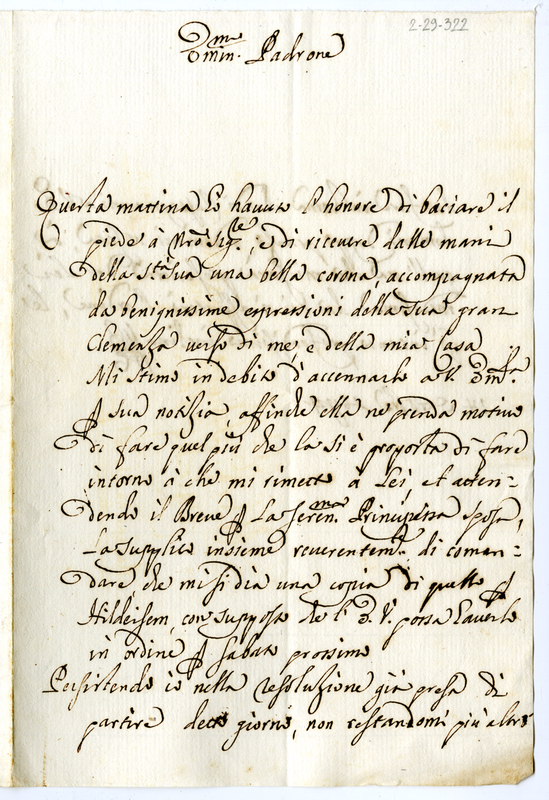 2-29-322
Padrone
Questa mattina hò havuto l'honore di baciare il
piede à Nrõ Sigre; e di ricevere dalle mani
della Stà Sua una bella corona, accompagnata
da benignissime espressioni della sua gran
Clemenza verso di me, e della mia Casa
Mi stimo in debito d'accennarlo a V.
sua notizia, affinche ella ne prenda motivo
di fare quel più che la si è proposta di fare
intorno à che mi rimetto à Lei, et atten=
dendo il Breve La Seren.ma Principessa sposa,
La supplico insieme reverentem.te di coman=
dare che mi si dia una copia di quello
Hildeisem, con supposto che l' V. possa haverlo
in ordine sabato prossimo
Persistendo io nella resoluzione già presa di
partire detto giorno, non restandomi più altro